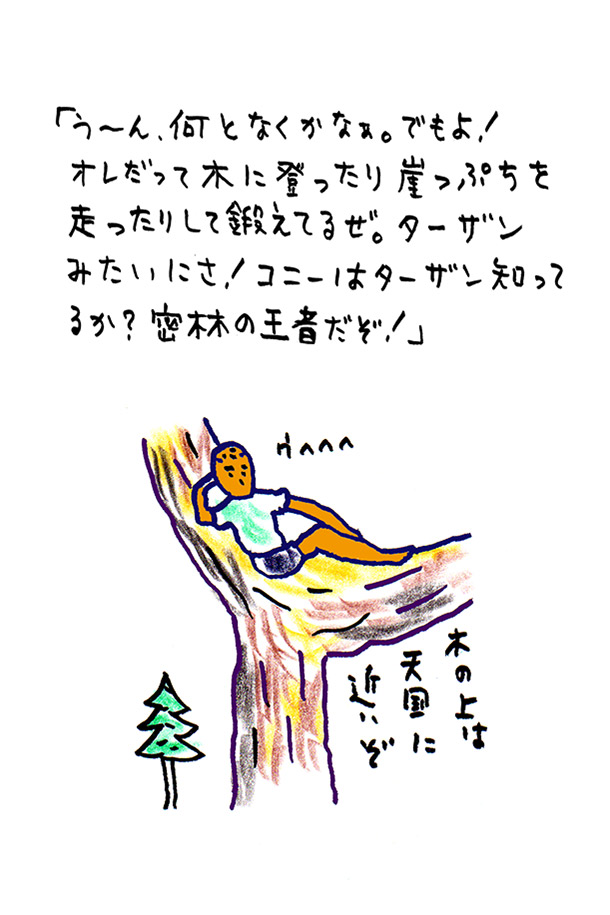 「う〜ん、何となくかなぁ。でもよ!
オレだって木に登ったり崖っぷちを
走ったりして鍛えてるぜ。ターザン
みたいにさ!コニーはターザン知って
るか?密林の王者だぞ!」
ウヘヘヘ
木の上は
天国に
近いぞ